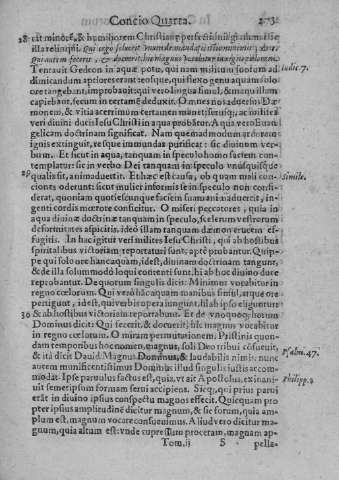 Concio Quarta. 273
illa relinqui. Qui ergo soluerit unum de mandatis
Qui autem fecerit, & docuerit, hic magnus vocabitur in regno cælorum.
Tentauit Gedeon in aquæ potu, qui nam militum suorum ad Iudic. 7.
dimicandum aptiores essent
ore tangebant, improbauit: qui vero lingua simul, & manu illam
capiebant, secum in certamē deduxit. Omnes nos aduersus Dæ
monem, & vitia acerrimum certamen manet:
veri diuini ducis Iesu Christi in aqua probātur. Aqua vero Euangelicam
gelicam doctrinam significat. Nam quemadmodum
ignis extinguit, resque immundas purificat: sic diuinum ver-
bum. Et sicut in aqua, tanquam in speculo homo suam con-
templatur: sic in verbo Dei tanquam in speculo vnusquisque
29 qualis sit, animaduertit. Et hæc est causa, ob quam mali con- Simile.
ciones oderunt: sicut mulier informis se in speculo non consi-
derat, quoniam quotiescunque faciem suam animaduertit, in-
genti cordis mœrore conficitur. O miseri peccatores, quia in
aqua diuinæ doctrinæ tanquam in speculo, scelerum vestrorum
deformitates aspicitis, ideo illam tanquam dæmon crucem ef-
fugitis. In hac igitur veri milites Iesu Christi, qui ab hostibus
spiritalibus victoriam reportaturi sunt, apte probantur. Quip-
pe qui solo ore hanc aquam, idest, diuinam doctrinam tangunt,
& de illa solummodo loqui contenti sunt, hi ab hoc diuino duce
reprobantur. De quorum singulis dicit: Minimus vocabitur in
regno cœlorum. Qui vero hāc aquam manibus simul, atque ore
pertingunt, idest, qui verbi opera iungunt, hi ab ipso eliguntur
30 & ab hostibus victoriam reportabunt. Et de vnoquoque horum
Dominus dicit: Qui fecerit, & docuerit, hic magnus vocabitur
in regno cœlorum. O miram permutationem. Pristinis quon-
dam temporibus hoc nomen, magnus, soli Deo tribui cōsueuit,
& ità dicit Dauid: Magnus Dominus, & laudabilis nimis: nunc Psalm. 47.
autem munificentissimus Dominus illud singulis iustis accom-
modat. Ipse paruulus factus est, quia, vt ait Apostolus, exinani- Philipp. 2
uit semetipsum formam serui accipiens. Sicq; qui prius parui
erāt in diuino ipsius conspectu magnos effecit. Quicquam pro
pter ipsius amplitudinē dicitur magnum, & sic forum, quia am-
plum est, magnum vocare consueuimus. Aliud vero dicitur ma-
gnum, quia altum est: vnde cupressum proceram, magnam ap-
Tom. ij S pella-